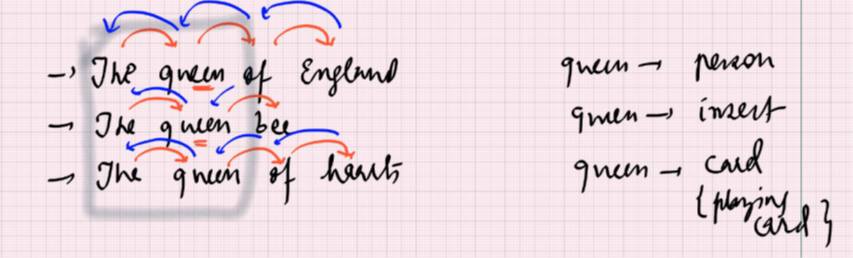 → The queen of England
→ The queen bee
→ The queen of hearts
queen → person
queen → insert
queen → card
{playing
card}